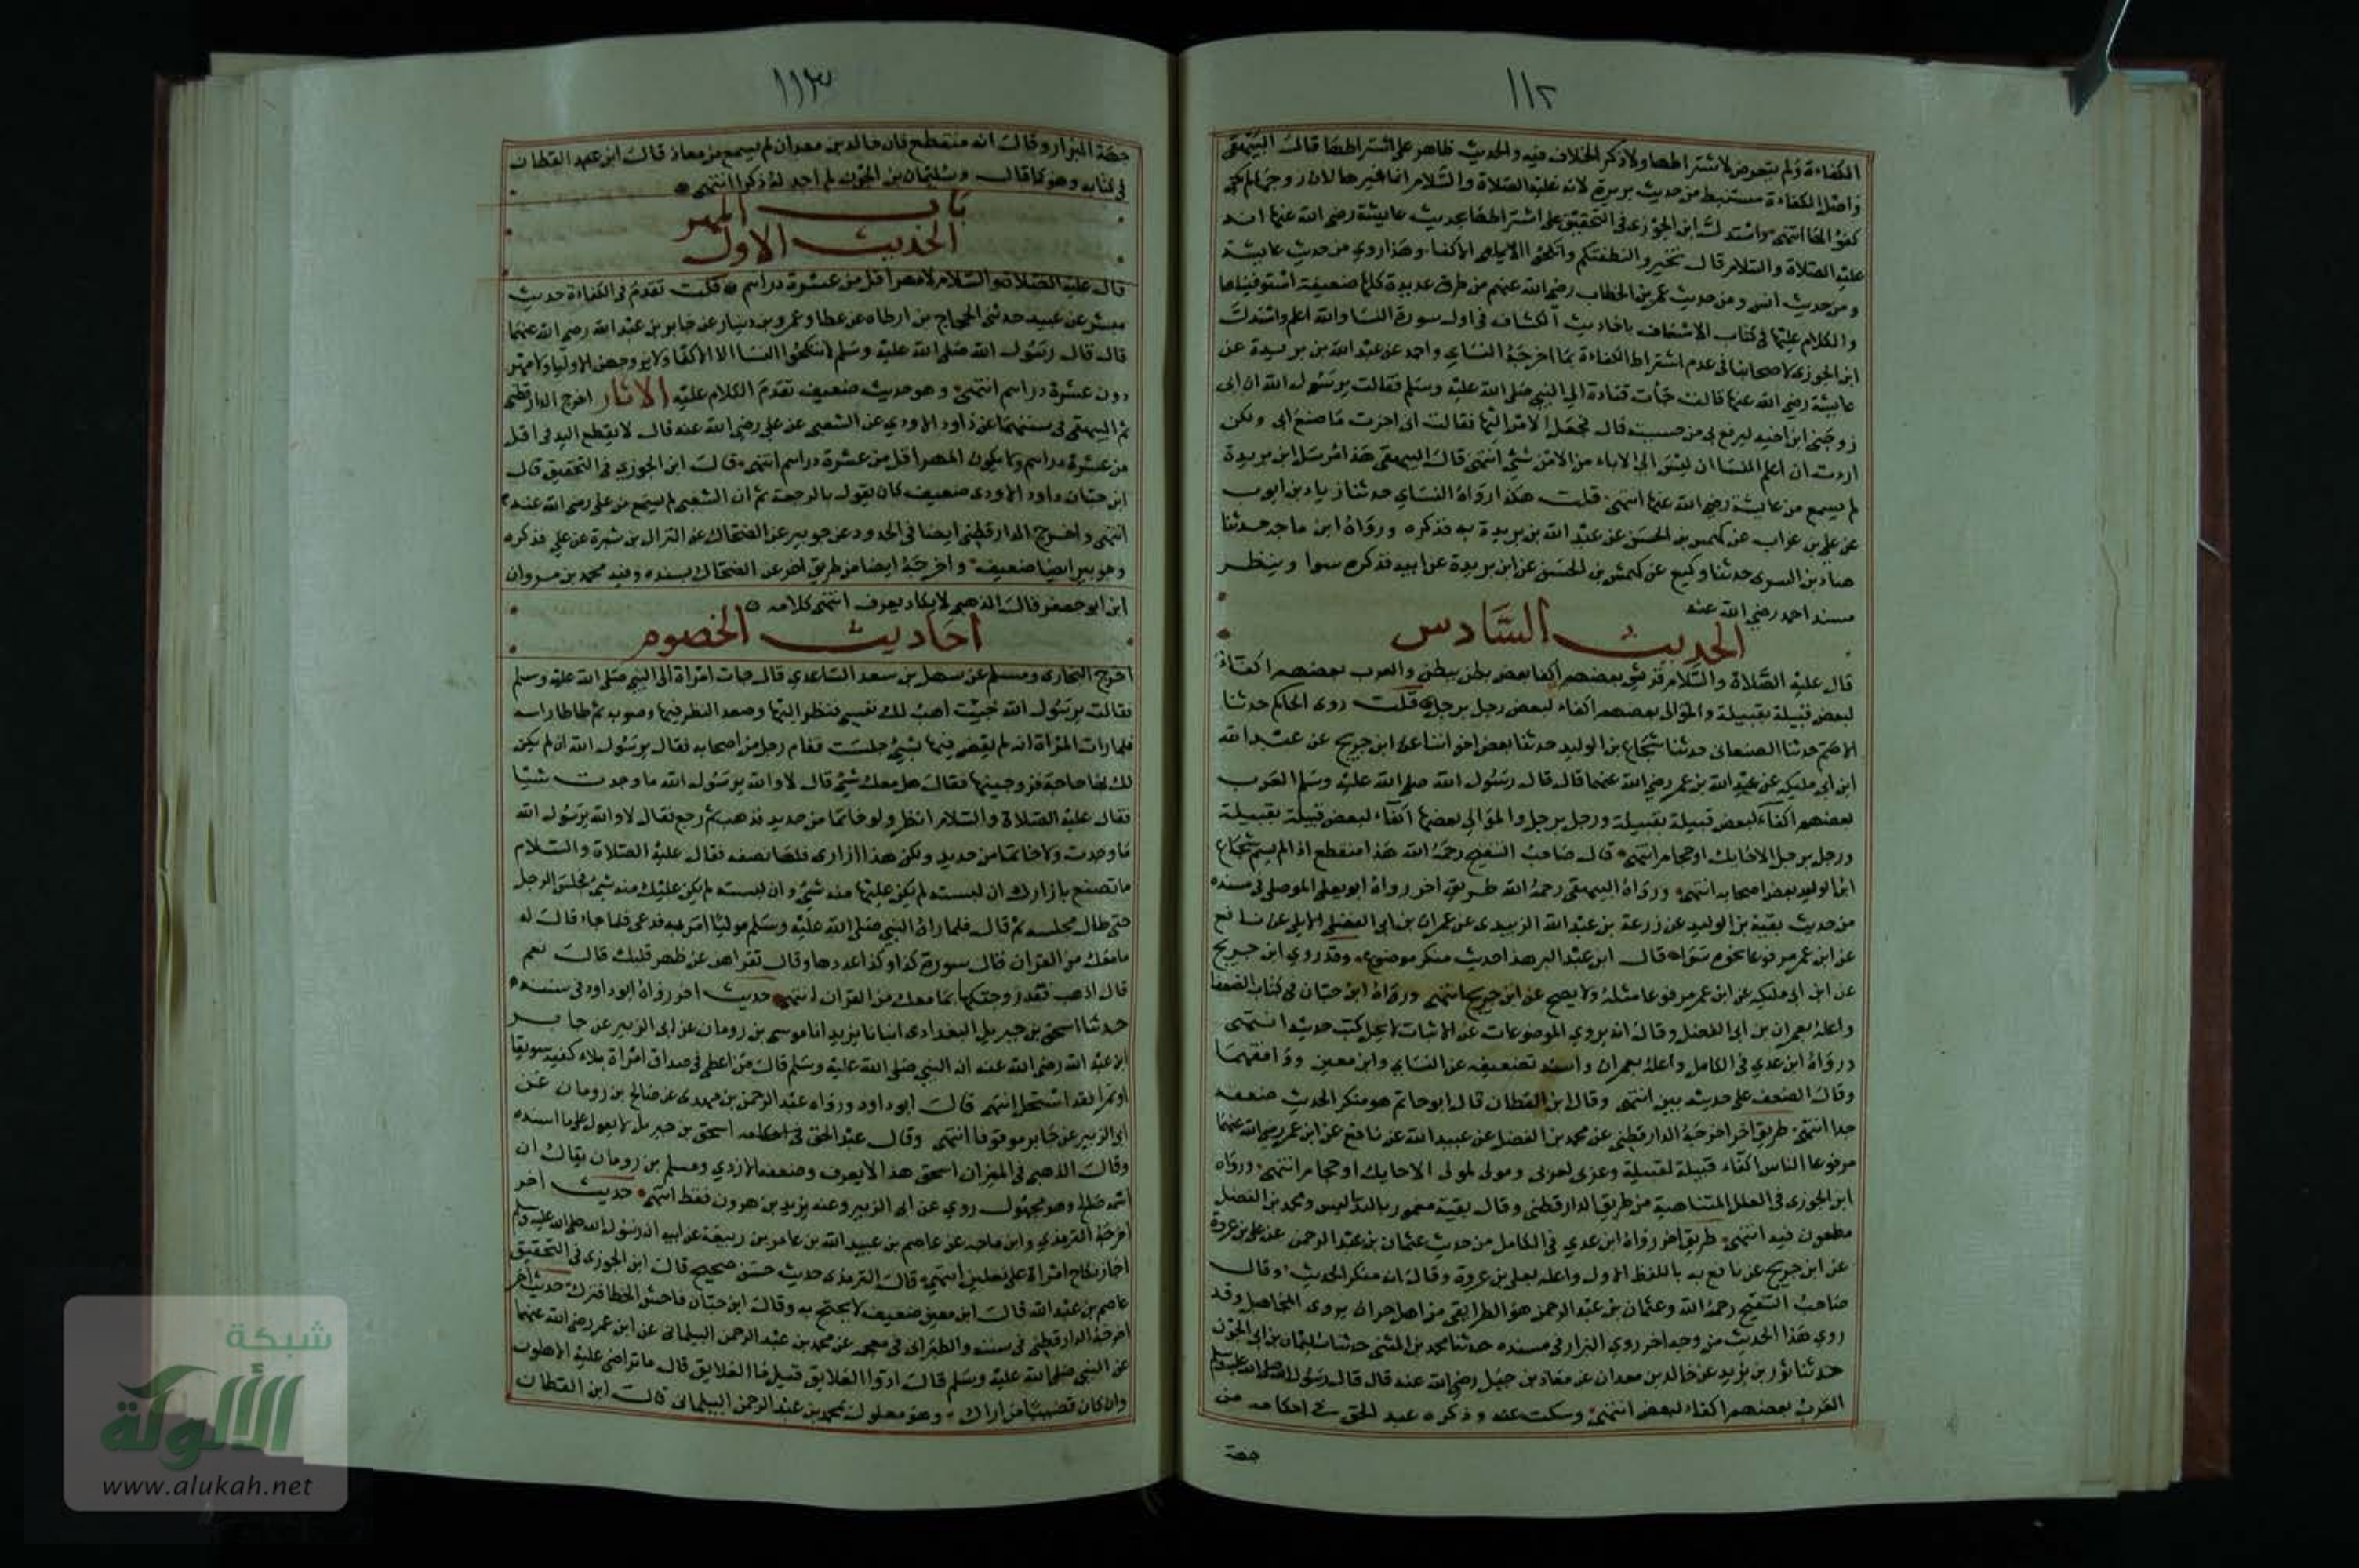 ١١٢
الكفاءة ولم يتعرض لاشتراطها ولا ذكر الخلاف فيه والحديث ظاهر على اشتراطها قال البيهقي
واصل الكفاءة مستنبط من حديث بريرة لانه عليه الصلاة والسلام انما خيرها لان زوجها لم يكن
كفؤا لها انتهى واستدل ابن الجوزى فى التحقيق على اشتراطها بحديث عايشة رضى الله عنها انه
عليه الصلاة والسلام قال تخيروا لنطفتكم وانكحوا الاكفاء وهذا روى من حديث عايشة
ومن حديث انس ومن حديث عمر بن الخطاب رضى الله عنهم من طرق عديدة كلها ضعيفة استوفيناها
والكلام عليها فى كتاب الاسعاف باحاديث الكشاف فى اول سورة النسا والله اعلم واستدل
ابن الجوزى لاصحابنا فى عدم اشتراط الكفاءة بما اخرجه النساى واحمد عن عبد الله بن بريدة عن
عايشة رضى الله عنها قالت جأت فتاة الى النبى صلى الله عليه وسلم فقالت يرسول الله ان ابى
زوجنى ابن اخيه ليرفع بى من خسيسته قال فجعل الامر اليها فقالت انى اجزت ما صنع ابى ولكن
اردت ان اعلم النسا ان ليس الى الاباء من الامر شئ انتهى قال البيهقى هذا مرسل ابن بريدة
لم يسمع من عايشة رضى الله عنها انتهى قلت هكذا رواه النساى حدثنا زياد بن ايوب
عن على بن غراب عن كهمس بن الحسن عن عبد الله بن بريدة به فذكره ورواه ابن ماجه حدثنا
هناد بن السرى حدثنا وكيع عن كهمس بن الحسن عن ابن بريدة عن ابيه فذكره سوا وينظر
مسند احمد رضى الله عنه
الحديث السادس
قال عليه الصلاة والسلام قريش بعضهم اكفا بعض بطن ببطن والعرب بعضهم اكفاء
لبعض قبيلة بقبيلة والموالى بعضهم اكفاء لبعض رجل برجل قلت روى الحاكم حدثنا
الاصم حدثنا الصنعانى حدثنا شجاع بن الوليد حدثنا بعض اخواننا عن ابن جريج عن عبد الله
ابن ابى مليكه عن عبد الله بن عمر رضى الله عنهما قال قال رسول الله صلى الله عليه وسلم العرب
بعضهم اكفاء لبعض قبيلة بقبيلة ورجل برجل والموالى بعضها اكفاء لبعض قبيلة بقبيلة
ورجل برجل الا حايك او حجام انتهى قال صاحب التنقيح رحمه الله هذا منقطع اذ لم يسم شجاع
ابن الوليد بعض اصحابه انتهى ورواه البيهقى رحمه الله طريق اخر رواه ابو يعلى الموصلى فى مسنده
من حديث بقية بن الوليد عن زرعة بن عبد الله الزبيدى عن عمران بن ابى الفضل الايلى عن نافع
عن ابن عمر مرفوعا نحوه سواء قال ابن عبد البر هذا حديث منكر موضوع وقد روى ابن جريج
عن ابن ابى مليكه عن ابن عمر مرفوعا مثله ولا يصح عن ابن جريج انتهى ورواه ابن حبان فى كتاب الضعفا
واعله بعمران بن ابى الفضل وقال انه يروى الموضوعات عن الاثبات لا يحل كتب حديثه انتهى
ورواه ابن عدى فى الكامل واعله بعمران واسند تضعيفه عن النساى وابن معين ووافقهما
وقال الضعف على حديثه بين انتهى وقال ابن القطان قال ابو حاتم هو منكر الحديث ضعيف
جدا انتهى طريق اخر اخرجه الدارقطنى عن محمد بن الفضل عن عبيد الله عن نافع عن ابن عمر رضى الله عنهما
مرفوعا الناس اكفاء قبيلة لقبيلة وعربى لعربى ومولى لمولى الا حايك او حجام انتهى ورواه
ابن الجوزى فى العلل المتناهية من طريق الدارقطنى وقال بقية مغمور بالتدليس ومحمد بن الفضل
مطعون فيه انتهى طريق اخر رواه ابن عدى فى الكامل من حديث عثمان بن عبد الرحمن عن على بن عروة
عن ابن جريج عن نافع به باللفظ الاول واعله بعلى بن عروة وقال انه منكر الحديث وقال
صاحب التنقيح رحمه الله وعثمان بن عبد الرحمن هو الطرايفى من اهل حران يروى المجاهيل وقد
روى هذا الحديث من وجه اخر روى البزار فى مسنده حدثنا محمد بن المثنى حدثنا سليمان بن ابى الجون
حدثنا ثور بن يزيد عن خالد بن معدان عن معاذ بن جبل رضى الله عنه قال قال رسول الله صلى الله عليه وسلم
العرب بعضهم اكفاء لبعض انتهى وسكت عنه وذكره عبد الحق فى احكامه من
جهة
١١٣
جهة البزار وقال انه منقطع فان خالد بن معدان لم يسمع من معاذ قال ابن القطان
فى كتابه وهو كما قال وسليمان بن ابى الجون لم اجد له ذكرا انتهى
باب المهر
الحديث الاول
قال عليه الصلاة والسلام لا مهر اقل من عشرة دراهم قلت تقدم فى الكفاءة حديث
مبشر بن عبيد حدثنى الحجاج بن ارطاه عن عطا وعمرو بن دينار عن جابر بن عبد الله رضى الله عنهما
قال قال رسول الله صلى الله عليه وسلم لا تنكحوا النسا الا الاكفا ولا يزوجهن الا الاوليا ولا مهر
دون عشرة دراهم انتهى وهو حديث ضعيف تقدم الكلام عليه الاثار اخرج الدارقطنى
ثم البيهقى فى سننهما عن داود الاودى عن الشعبى عن على رضى الله عنه قال لا يقطع اليد فى اقل
من عشرة دراهم ولا يكون المهر اقل من عشرة دراهم انتهى قال ابن الجوزى فى التحقيق قال
ابن حبان داود الاودى ضعيف كان يقول بالرجعة ثم ان الشعبى لم يسمع من على رضى الله عنه
انتهى واخرج الدارقطنى ايضا فى الحدود عن جويبر عن الضحاك عن النزال بن سبرة عن على فذكره
وجويبر ايضا ضعيف واخرجه ايضا من طريق اخر عن الضحاك بسنده وفيه محمد بن مروان
ابن ابو جعفر قال الذهبى لا يكاد يعرف انتهى كلامه
احاديث الخصوم
اخرج البخارى ومسلم عن سهل بن سعد الساعدى قال جات امراة الى النبى صلى الله عليه وسلم
فقالت يرسول الله جيت اهب لك نفسى فنظر اليها وصعد النظر فيها وصوبه ثم طاطا راسه
فلما رات المراة انه لم يقض فيها بشئ جلست فقام رجل من اصحابه فقال يرسول الله ان لم يكن
لك بها حاجة فزوجنيها فقال هل معك شئ قال لا والله يرسول الله ما وجدت شيئا
فقال عليه الصلاة والسلام انظر ولو خاتما من حديد فذهب ثم رجع فقال لا والله يرسول الله
ما وجدت ولا خاتما من حديد ولكن هذا ازارى فلها نصفه فقال عليه الصلاة والسلام
ما تصنع بازارك ان لبسته لم يكن عليها منه شئ وان لبسته لم يكن عليك منه شئ فجلس الرجل
حتى طال مجلسه ثم قال فلما راه النبى صلى الله عليه وسلم موليا امر به فدعى فلما جاء قال له
ما معك من القران قال سورة كذا وكذا عددها وقال تقراهن عن ظهر قلبك قال نعم
قال اذهب فقد زوجتكها بما معك من القران انتهى حديث اخر رواه ابو داود فى سننه
حدثنا اسحق بن جبريل البغدادى انبانا يزيد انا موسى بن رومان عن ابى الزبير عن جابر
ابن عبد الله رضى الله عنه ان النبى صلى الله عليه وسلم قال من اعطى فى صداق امراة ملاء كفيه سويقا
او تمرا فقد استحل انتهى قال ابو داود ورواه عبد الرحمن بن مهدى عن صالح بن رومان عن
ابى الزبير عن جابر موقوفا انتهى وقال عبد الحق فى احكامه اسحق بن جبريل لا يعول على ما اسنده
وقال الذهبى فى الميزان اسحق هذا لا يعرف وضعفه الازدى ومسلم بن رومان يقال ان
اسمه صالح وهو مجهول روى عن ابى الزبير وعنه يزيد بن هرون فقط انتهى حديث اخر
اخرجه الترمذى وابن ماجه عن عاصم بن عبيد الله بن عامر بن ربيعة عن ابيه ان رسول الله صلى الله عليه وسلم
اجاز نكاح امراة على نعلين انتهى قال الترمذى حديث حسن صحيح قال ابن الجوزى فى التحقيق
عاصم بن عبد الله قال ابن معين ضعيف لا يحتج به وقال ابن حبان فاحش الخطا فترك حديث اخر
اخرجه الدارقطنى فى سننه والطبرانى فى معجمه عن محمد بن عبد الرحمن البيلمانى عن ابن عمر رضى الله عنهما
عن النبى صلى الله عليه وسلم قال ادوا العلايق قيل فما العلايق قال ما تراضى عليه الاهلون
وان كان قضيبا من اراك وهو معلول بمحمد بن عبد الرحمن البيلمانى قال ابن القطان
شبكة
الألوكة
www.alukah.net